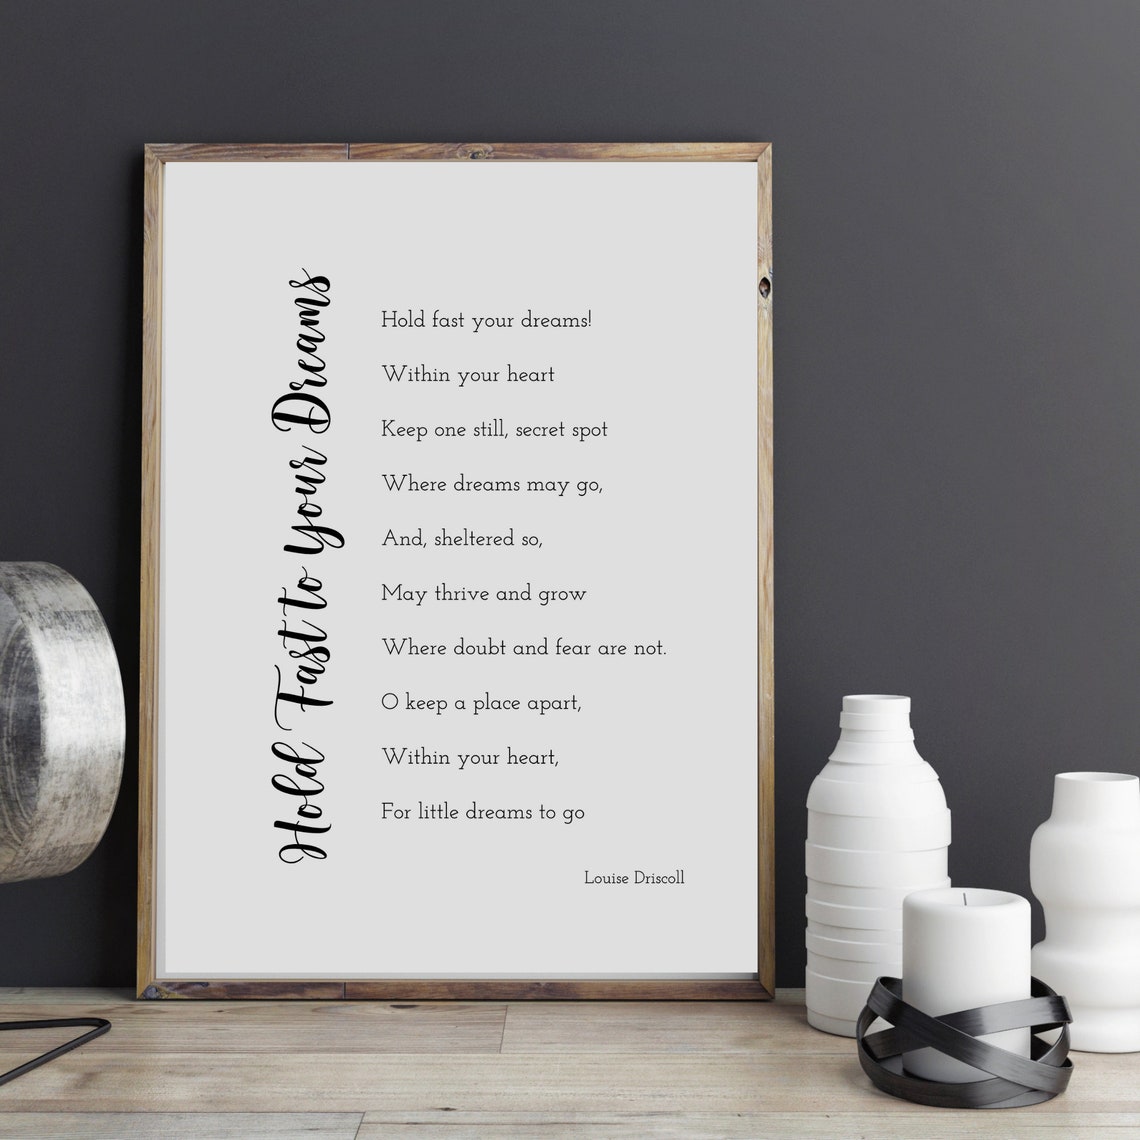 Hold Fast to Your Dreams
Hold fast your dreams!
Within your heart
Keep one still, secret spot
Where dreams may go,
And, sheltered so,
May thrive and grow
Where doubt and fear are not.
O keep a place apart,
Within your heart,
For little dreams to go
Louise Driscoll